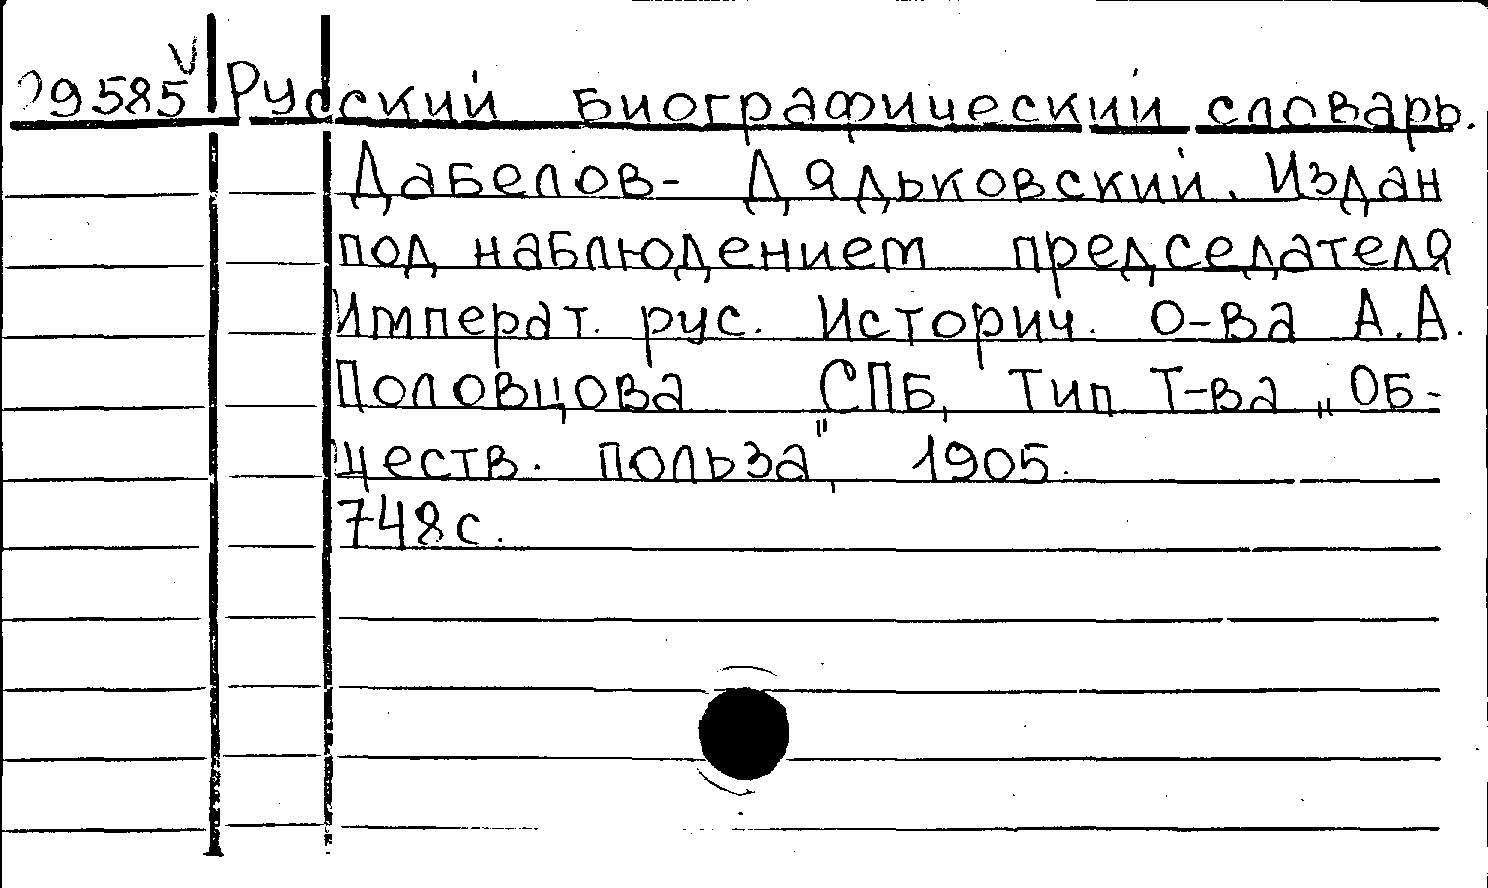 29585 Русский биографический словарь.
Дабелов- Дядьковский. Издан
под наблюдением председателя
Императ. рус. Историч. о-ва А.А.
Половцова СПБ, Тип Т-ва „Об-
ществ. польза", 1905.
748с.